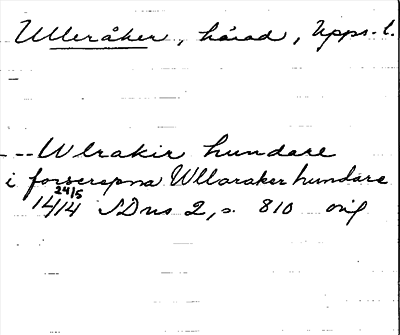 Ulleråker, härad, Upps. l.
--- Wlrakir hundare
i forscrepna Wllaraker hundare
24/5
1414 SDns 2, s. 810 orig